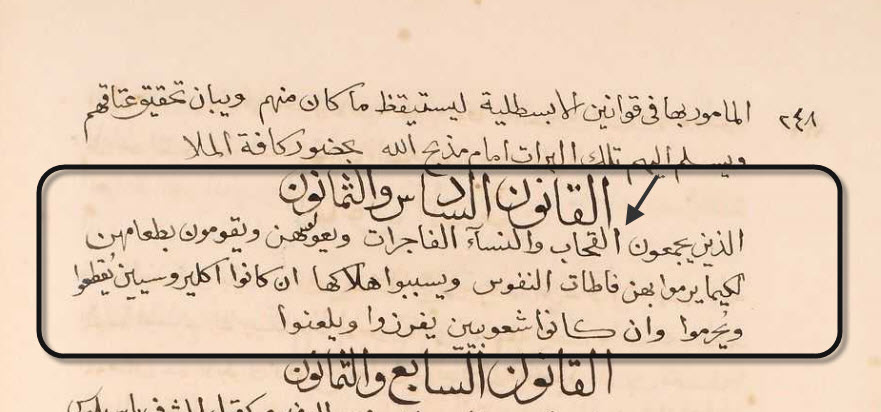 ٢٤٨
المامور بها فى قوانين الابسطلية ليستيقظ ما كان منهم ويبان تحقيق عتاقهم
ويسلم اليهم تلك البرات امام مذبح الله بحضور كافة الملا
القانون السادس والثمانون
الذين يجمعون القحاب والنسآء الفاجرات ويعولهن ويقومون بطعامهن
لكيما يرموا بهن فاطات النفوس ويسببوا هلاكها ان كانوا اكليروسيين يُقطعوا
ويُحرموا وان كانوا شعوبيين يفرزوا ويلعنوا
القانون السابع والثمانون